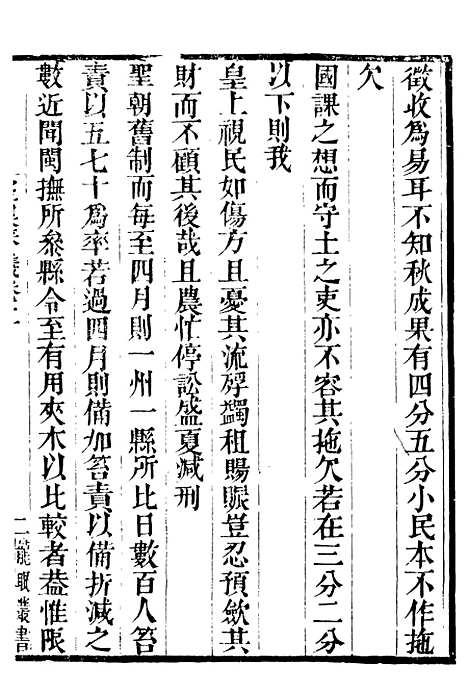 徵收爲易耳不知秋成果有四分五分小民本不作拖
欠
國課之想而守土之吏亦不容其拖欠若在三分二分
以下則我
皇上視民如傷方且憂其流殍蠲租賜賑豈忍預歛其
財而不顧其後哉且農忙停訟盛夏减刑
聖朝舊制而每至四月則一州一縣所比日數百人笞
責以五七十爲率若過四月則備加笞責以備折减之
數近聞閩撫所叅縣令至有用夾木以比較者葢惟限
二龍眠叢書